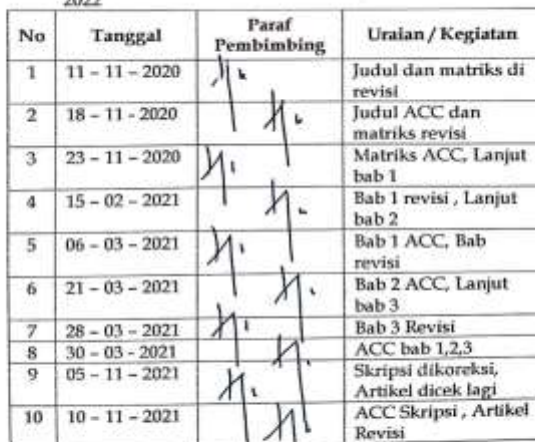 2022
No Tanggal Paraf Pembimbing Uraian / Kegiatan
1 11 – 11 – 2020 Judul dan matriks di
revisi
2 18 – 11 - 2020 Judul ACC dan
matriks revisi
3 23 – 11 – 2020 Matriks ACC, Lanjut
bab 1
4 15 – 02 – 2021 Bab 1 revisi , Lanjut
bab 2
5 06 – 03 – 2021 Bab 1 ACC, Bab
revisi
6 21 – 03 – 2021 Bab 2 ACC, Lanjut
bab 3
7 28 – 03 – 2021 Bab 3 Revisi
8 30 – 03 - 2021 ACC bab 1,2,3
9 05 – 11 – 2021 Skripsi dikoreksi,
Artikel dicek lagi
10 10 – 11 – 2021 ACC Skripsi , Artikel
Revisi